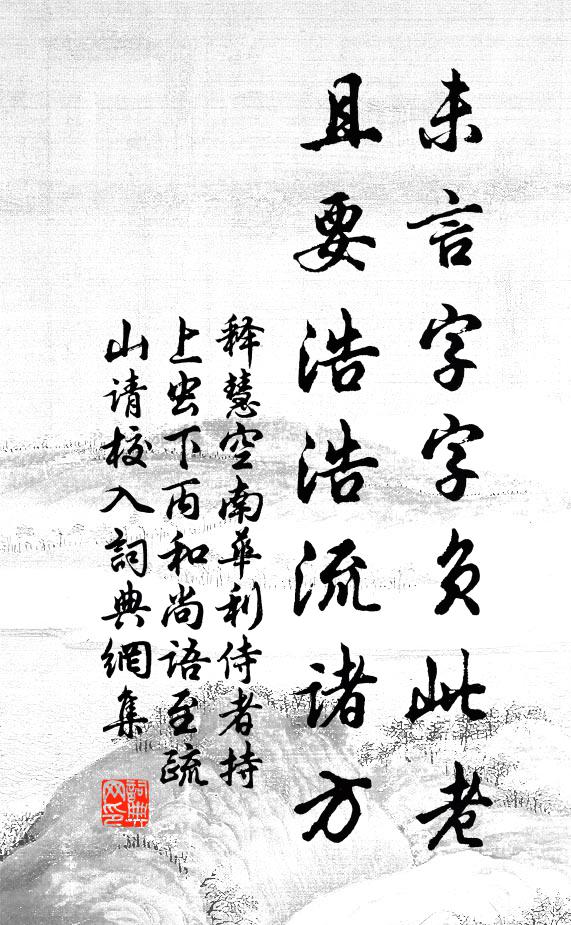 未言字字负此老
且要浩浩流诸方
释慧空南华利侍者持
上虫下丙和尚语至疏
山请校入詞典網集
詞典网印